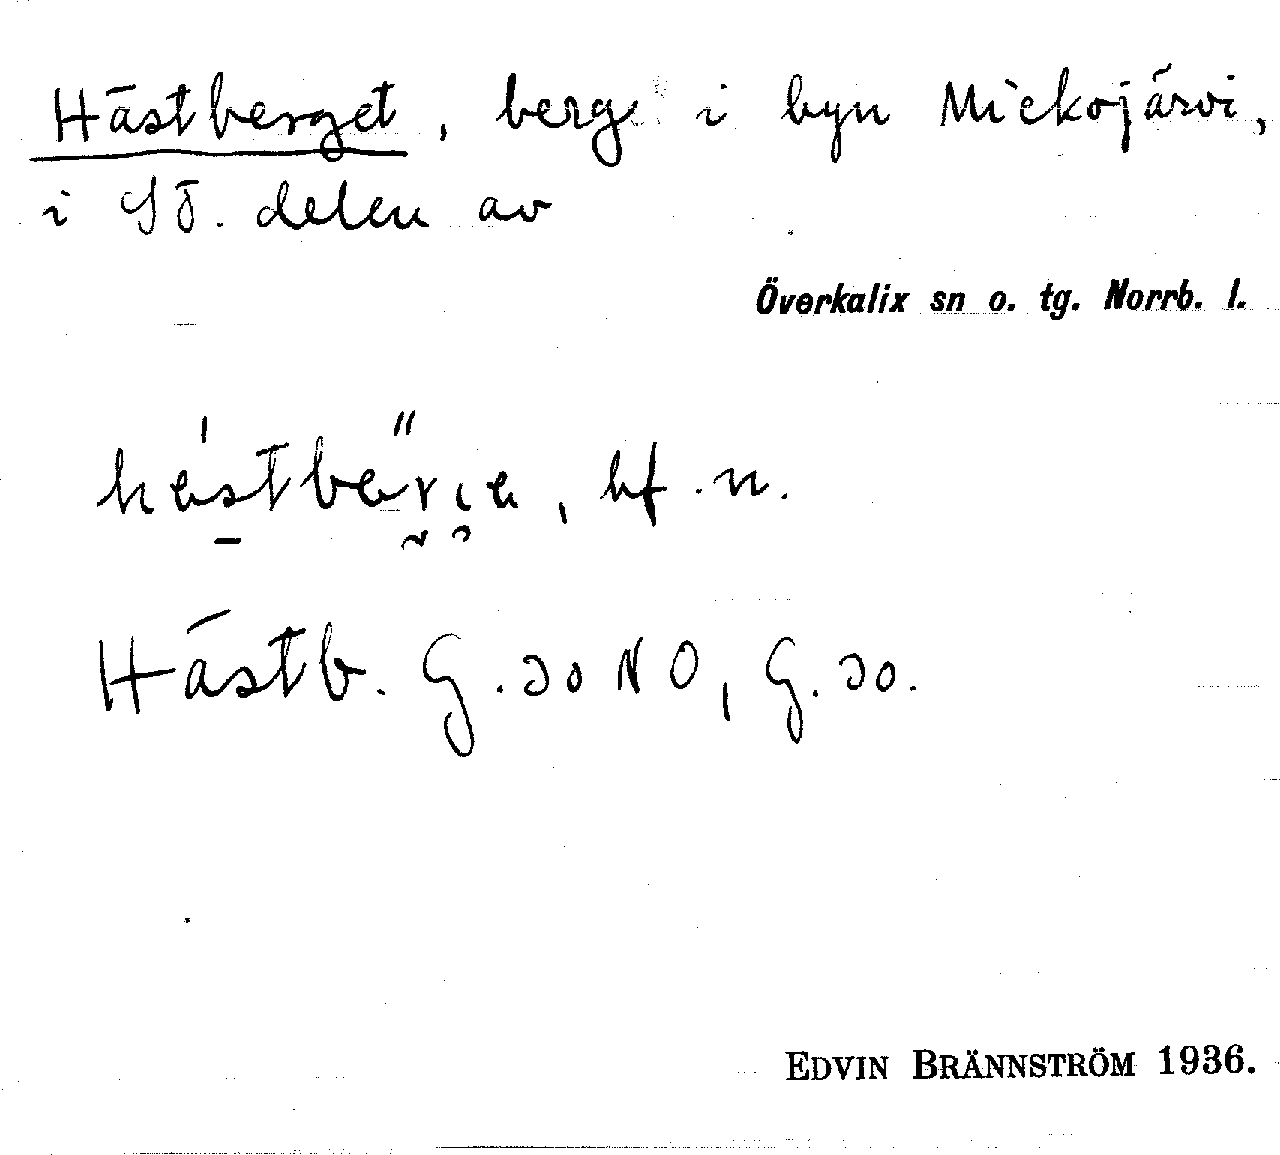 Hästberget, berg i byn Mickojärvi,
i SÖ. delen av
Överkalix sn o. tg. Norrb. l.
hf. n.
Hästb. G.30 NO, G.30.
EDVIN BRÄNNSTRÖM 1936.